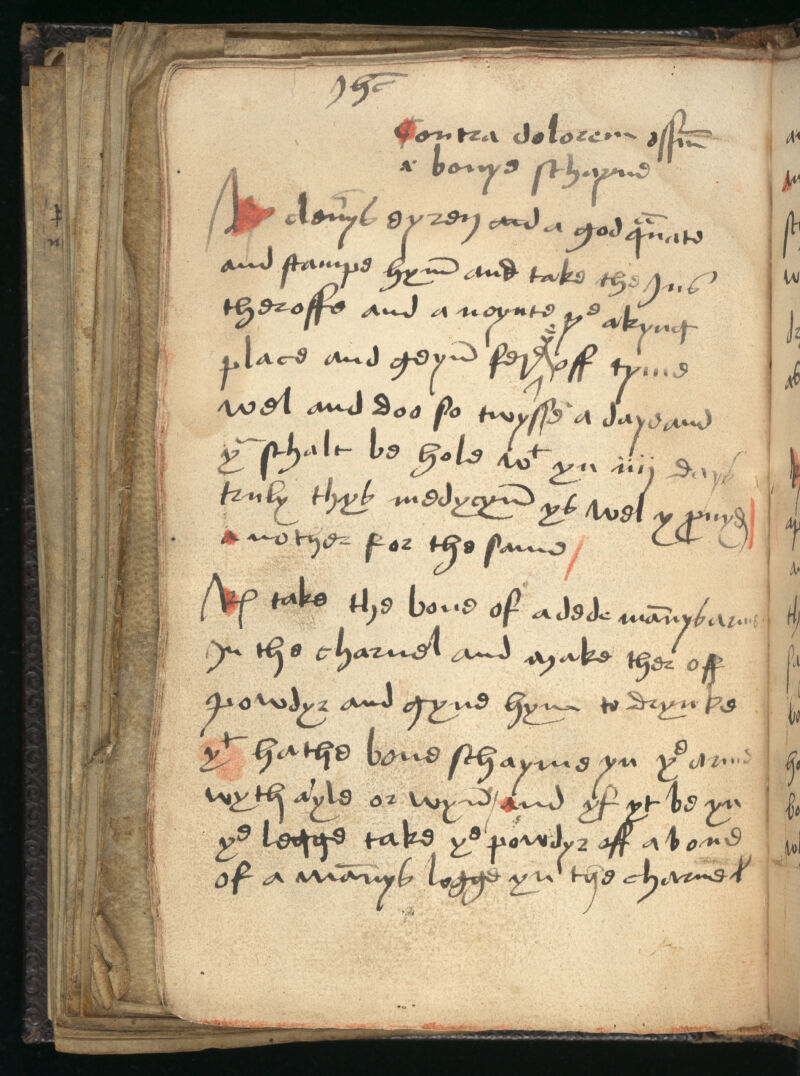 Jhc
Contra dolorem ossiū
a bonys schayne
and a god qⁿate
and stampe hym̄ and take the Jus
theroffe and a noynte yᵉ akyng
place and geyn̄ off tyme
wel and doo so twysse a daye and
yⁿ schalt be hole wᵗ yn iiij days
truly thys medycyn̄ ys wel y puyd
a nother for the same /
take the bone of a dede mānys arme
Jn the charnel and make ther off
powdyr and gyue hym to drynke
yᵗ hathe bone schayne yn yᵉ arme
wyth ayle or wyn̄ / and yf yt be yn
yᵉ legge take yᵉ powdyr off a bone
of a mānys legge yn the charnel